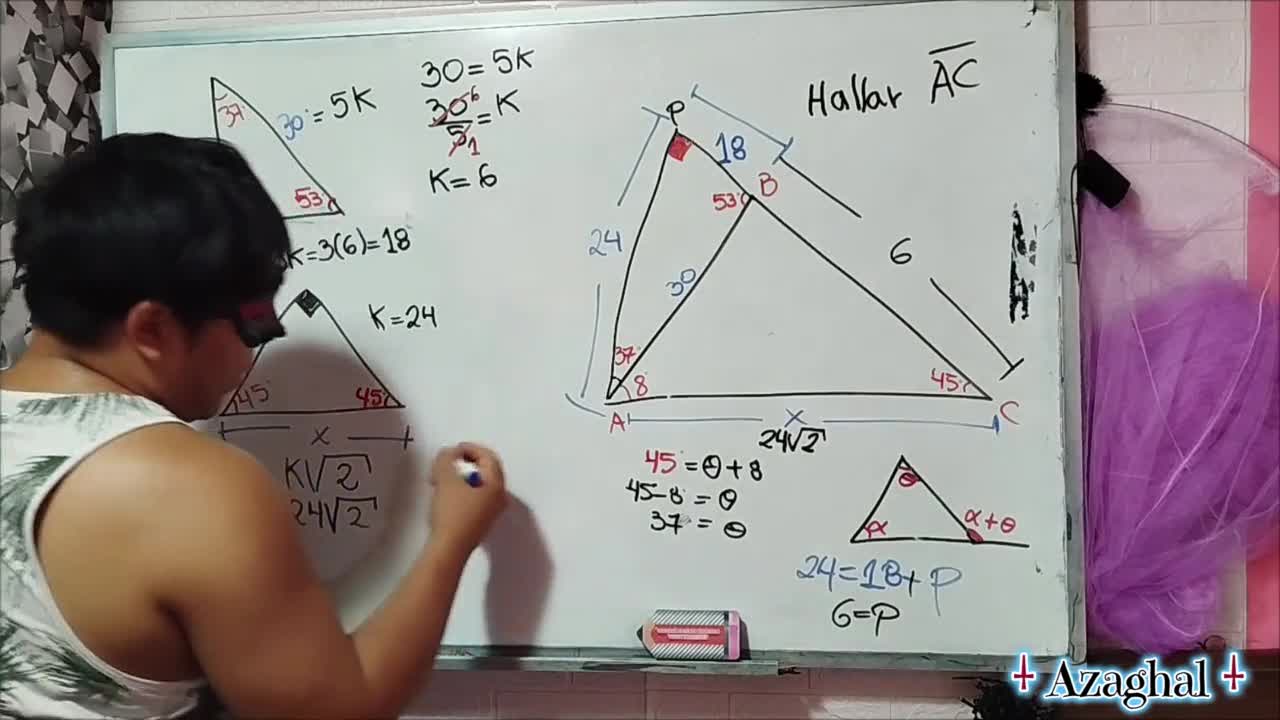 37°
30 = 5K
53°
K=3(6)=18
30 = 5K
30 6
5 1 = K
K = 6
K=24
45°
45°
x
K√2
24√2
Hallar AC
P
18
B
53°
24
30
6
37°
8°
45°
A
C
x
24√2
45° = θ + 8
45-8 = θ
37 = θ
θ
α
α + θ
24 = 18 + P
6 = P
Azaghal